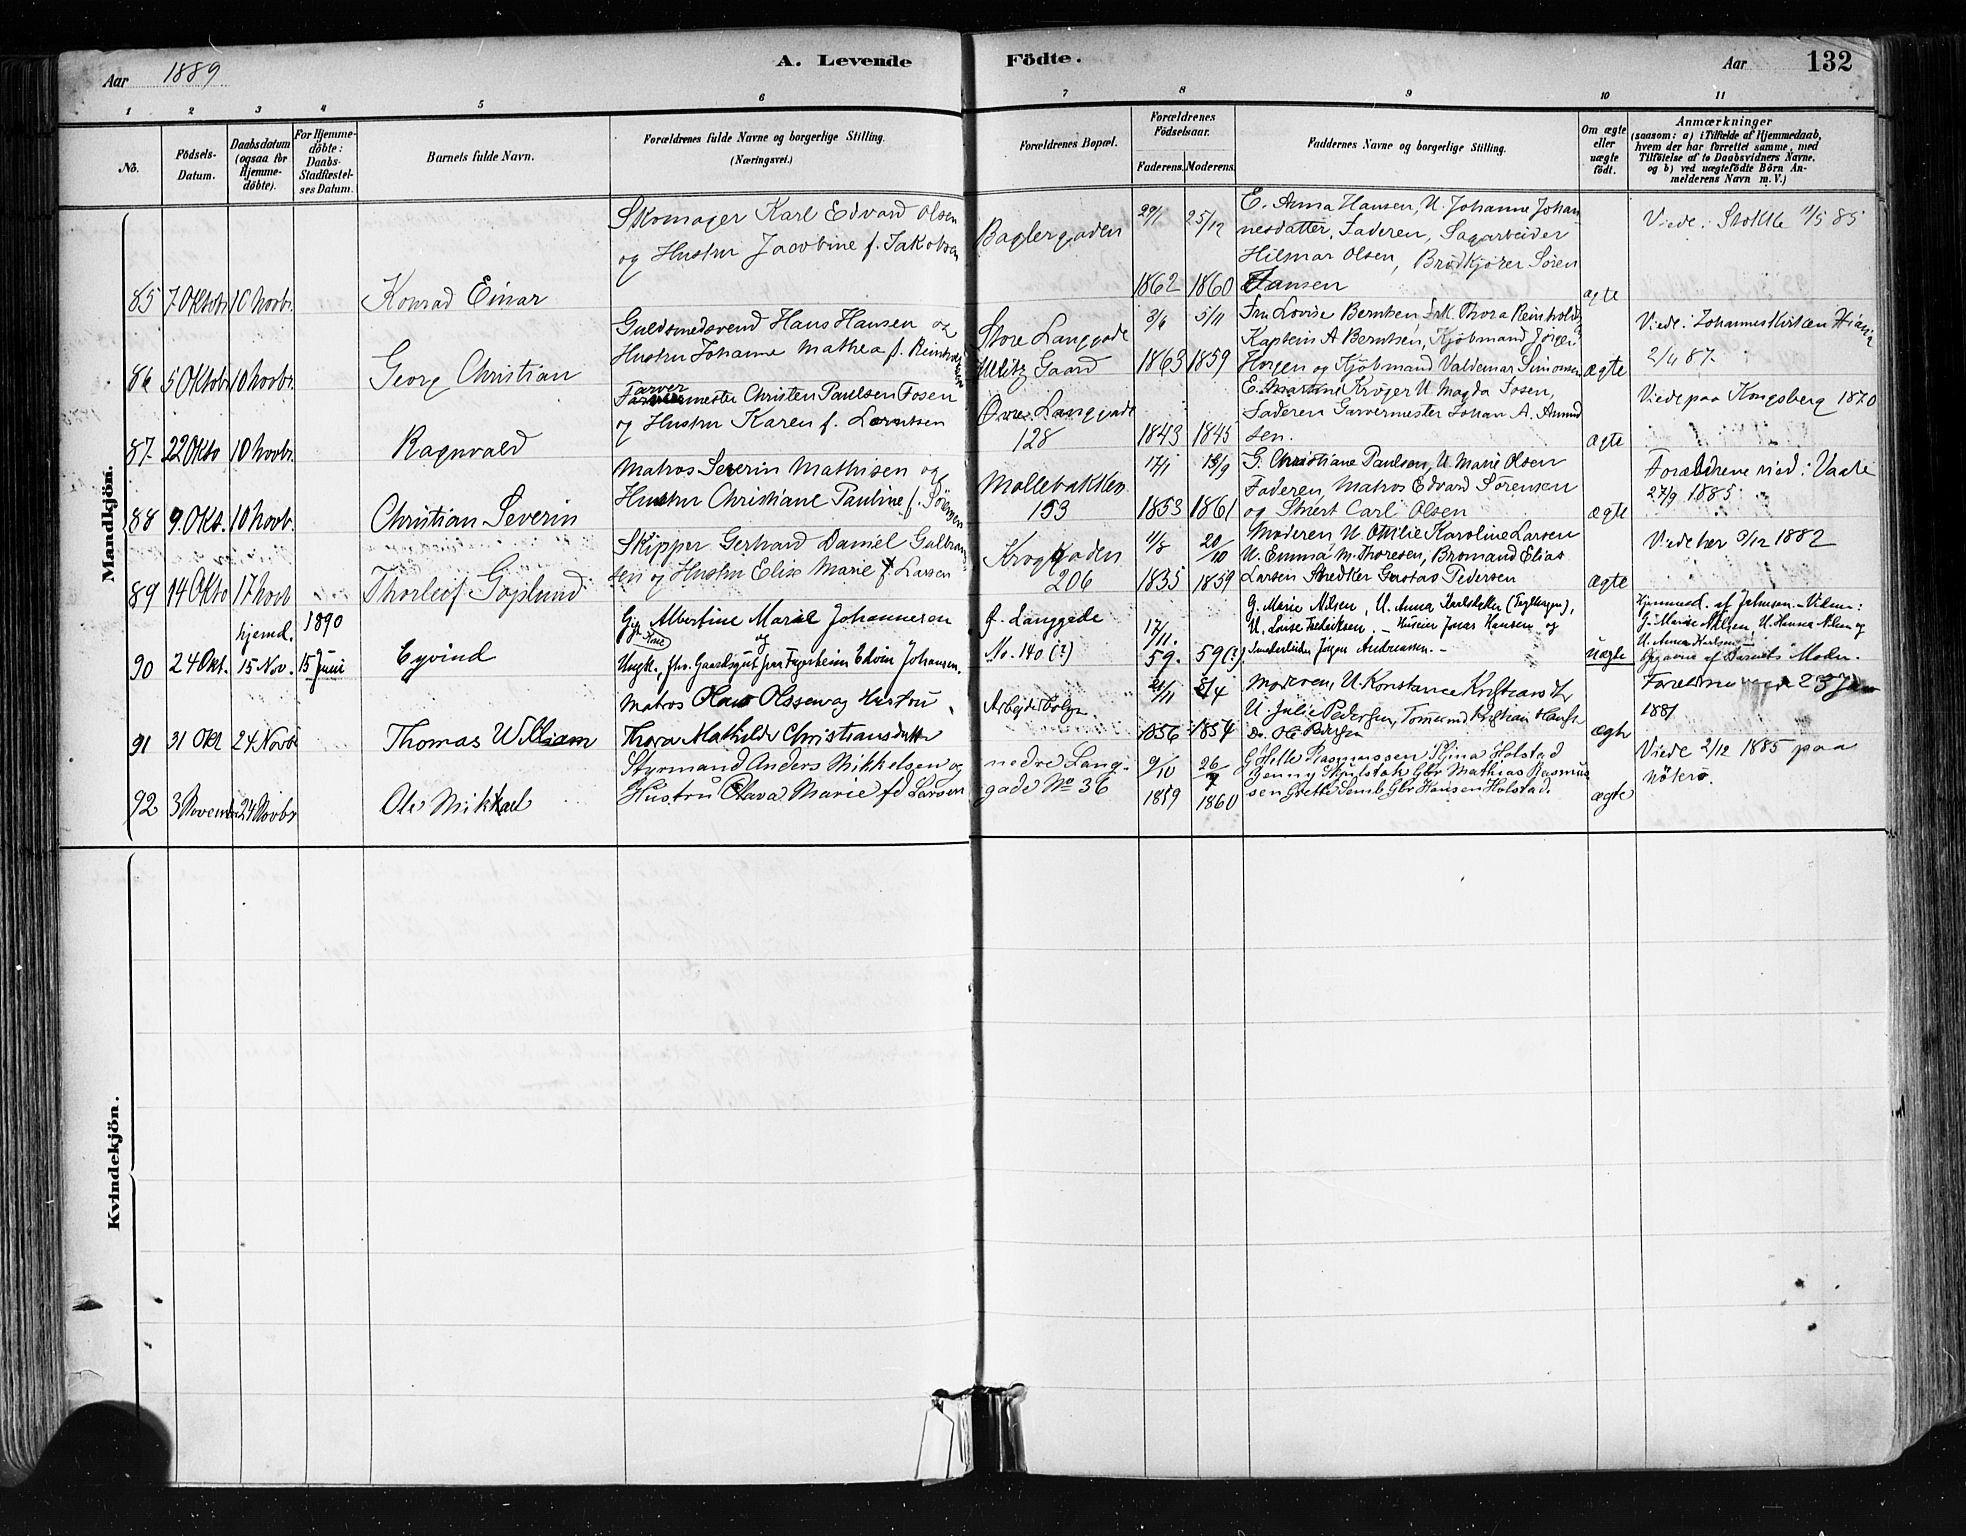 Aar 1889
A. Levende
Födte.
Aar
132
1 2 3 4 5 6 7 8 9 10 11
No.
Födsels-
Datum.
Daabsdatum
(ogsaa för
Hjemme-
döbte).
For Hjemme-
döbte:
Daabs-
Stadfæstel-
ses Datum.
Barnets fulde Navn.
Forældrenes fulde Navne og borgerlige Stilling.
(Næringsvei.)
Forældrenes Bopæl.
Forældrenes
Födselsaar.
Faderens.
Moderens.
Faddernes Navne og borgerlige Stilling.
Om ægte
eller
uægte
födt.
Anmærkninger
(saasom: a) i Tilfælde af Hjemmedaab,
hvem der har forrettet samme, med
Tilföielse af to Daabsvidners Navne,
og b) ved uægtefödte Börn An-
melderens Navn m. V.)
Mandkjön.
85 7 Oktobr 10 Novbr.
Konrad Einar
Skomager Karl Edvard Olsen
og Hustru Jacobine f. Jakobsen
Baglergaden
29/1 1862
25/12 1860
E. Anna Hansen, U. Johanne Johan
nesdatter, Faderen, Sagarbeider
Hilmar Olsen, Brödkjörer Sören
Hansen
ægte
Viede i Stokke 11/5 85
86 5 Oktobr 10 Novbr.
Georg Christian
Guldsmedsvend Hans Hansen og
Hustru Johanne Mathea f.
Store Langgade
Gaard
3/6 1863
5/11 1859
Fru Lovise Berntsen Frk. Thora
Kaptein A Berntsen, Kjöbmand Jörgen
Horgen og Kjöbmand Valdemar Simonsen
ægte
Viede i
2/4 87
87 22 Okto 10 Novbr.
Ragnvald
Farver
mester Christen Paulsen Fosen
og Hustru Karen f. Lorentsen
Övre Langgade
128
1843 1845
E. Martine Kröger U. Magda Fosen,
Faderen Garvermester Johan A. Amund
sen.
ægte
Viede paa Kongsberg 1870
88 9. Okt. 10 Novb.
Christian Severin
Matros Severin Mathisen og
Hustru Christiane Pauline f.
Möllebakken
153
17/1 1853
13/9 1861
G. Christiane Paulsen, U. Marie Olsen
Faderen, Matros Edvard Sörensen
og Carl Olsen
ægte
Forældrene vied i Vaale
27/9 1885
89 14 Okto 17 Novb
Thorleif Goplund
Skipper Gerhard Daniel Gulbran
sen og Hustru Elise Marie f. Larsen
Kroggaden
206
11/8 1835
20/10 1859
Moderen U. Otilie Karoline Larsen
U. Emma M. Thoresen, Bromand Elias
Larsen Gustav Pedersen
ægte
Viede her 3/12 1882
90 24 Okt. hjemd. 15 Nov. 1890 15 Juni
Eyvind
Albertine Marie Johannesen
og
Ungk. fhv. Gaardsgut Edvin Johansen.
Ö. Langgade
No. 140 (?)
17/11 59. 59 (?)
G. Marie Nilsen, U. Anna
U. Lovise Fredriksen, Jonas Hansen og
Jörgen Andreassen.
uægte
Hjemmed. af
G. Marie Nilsen U. Hanna Nilsen og
U. Anna Karlsen.
Opgavne af Barnets Moder.
91 31 Okt 24 Novbr
Thomas William
Matros Olaus Olssen og Hustru
Thora Mathilde Christiansdatter
Arbejderbolge
21/11 1856
8/4 1854
Moderen, U. Konstance
U. Julie Pedersen,
Ole Pedersen
ægte
23 Jan
1881
92 3 November 24 Novbr
Ole Mikkael
Styrmand Anders Mikkelsen og
Hustru Olava Marie fd Larsen
nedre Lang-
gade No 36
9/10 1859
26/7 1860
G Helle Rasmussen Holstad
Jenny Gbr Mathias Rasmus
sen Grette Gbr Hansen Holstad
ægte
Viede 2/12 1885 paa
Nöterö.
Kvindekjön.